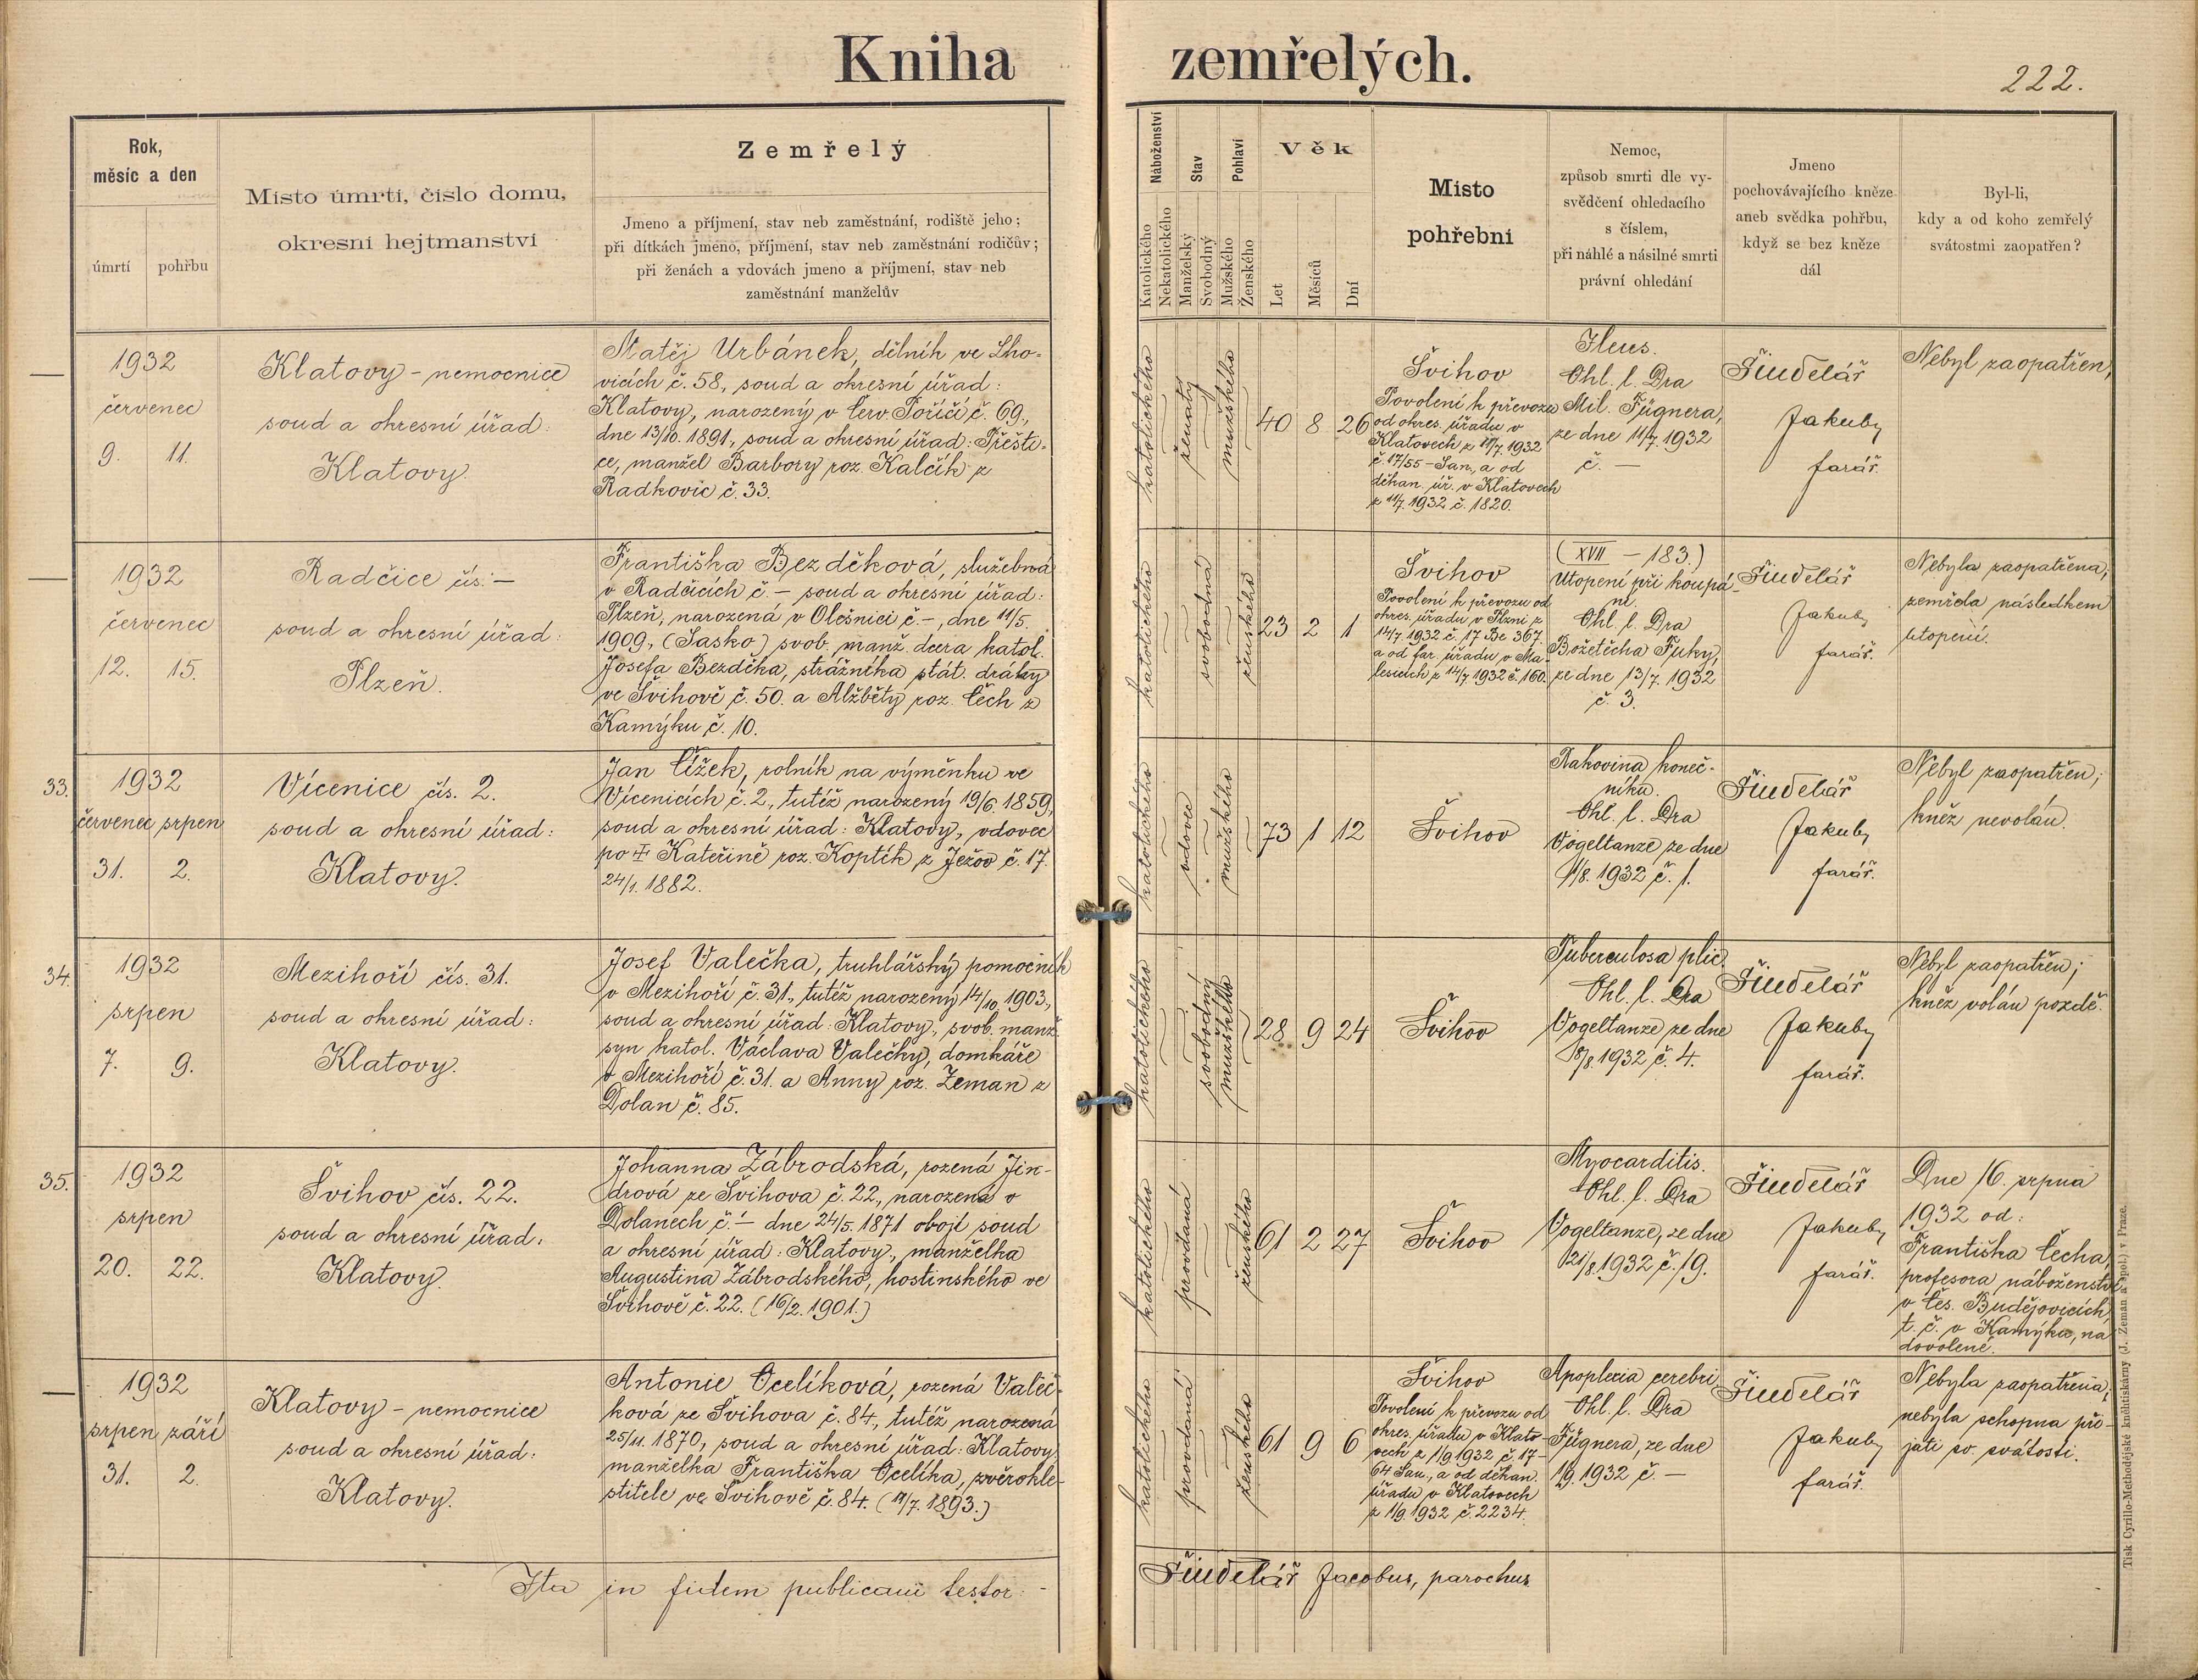 Kniha zemřelých.
222.
Rok,
měsíc a den
úmrtí
pohřbu
Místo úmrtí, číslo domu,
okresní hejtmanství
Zemřelý
Jmeno a příjmení, stav neb zaměstnání, rodiště jeho;
při dítkách jmeno, příjmení, stav neb zaměstnání rodičův;
při ženách a vdovách jmeno a příjmení, stav neb
zaměstnání manželův
Náboženství
Katolického
Nekatolického
Stav
Manželský
Svobodný
Pohlaví
Mužského
Ženského
Věk
Let
Měsíců
Dní
Místo
pohřební
Nemoc,
způsob smrti dle vy-
svědčení ohledacího
s číslem,
při náhlé a násilné smrti
právní ohledání
Jmeno
pochovávajícího kněze
aneb svědka pohřbu,
když se bez kněze
dál
Byl-li,
kdy a od koho zemřelý
svátostmi zaopatřen?
—
1932
červenec
9. 11.
Klatovy - nemocnice
soud a okresní úřad:
Klatovy.
Matěj Urbánek, dělník ve Lho-
vicích č. 58., soud a okresní úřad:
Klatovy, narozený v Červ. Poříčí č. 69.,
dne 13/10. 1891., soud a okresní úřad: Přešti-
ce, manžel Barbory roz. Kalčík z
Radkovic č. 33.
katolického
ženatý
mužského
40 8 26
Švihov
Povolení k převozu
od okres. úřadu v
Klatovech z 11/7. 1932
č. 17/55 - San., a od
děkan. úř. v Klatovech
z 11/7. 1932 č. 1820.
Ileus.
Ohl. l. Dra
Mil. Fügnera,
ze dne 11/7. 1932
č. —
Šindelář
Jakub,
farář.
Nebyl zaopatřen,
—
1932
červenec
12. 15.
Radčice čís. —
soud a okresní úřad:
Plzeň.
Františka Bezděková, služebná
v Radčicích č. — soud a okresní úřad:
Plzeň, narozená v Olešnici č. —, dne 11/5.
1909., (Sasko) svob. manž. dcera katol.
Josefa Bezděka, strážníka stát. dráhy
ve Švihově č. 50. a Alžběty roz. Čech z
Kamýku č. 10.
katolického
svobodná
ženského
23 2 1
Švihov
Povolení k převozu od
okres. úřadu v Plzni z
14/7. 1932 č. 17 Be 367.
a od far. úřadu v Ma-
lesicích z 14/7. 1932 č. 160.
(XVII — 183.)
Utopení při koupá-
ní.
Ohl. l. Dra
Božetěcha Fuky,
ze dne 13/7. 1932
č. 3.
Šindelář
Jakub,
farář.
Nebyla zaopatřena;
zemřela následkem
utopení.
33.
1932
červenec srpen
31. 2.
Vícenice čís. 2.
soud a okresní úřad:
Klatovy.
Jan Čížek, rolník na výměnku ve
Vícenicích č. 2., tutéž narozený 19/6. 1859,
soud a okresní úřad: Klatovy, vdovec
po † Kateřině roz. Koptík z Ježov č. 17.
24/1. 1882.
katolického
vdovec
mužského
73 1 12
Švihov
Rakovina koneč-
níku.
Ohl. l. Dra
Vogeltanze ze dne
1/8. 1932 č. 1.
Šindelář
Jakub,
farář.
Nebyl zaopatřen;
kněz nevolán.
34.
1932
srpen
7. 9.
Mezihoří čís. 31.
soud a okresní úřad:
Klatovy.
Josef Valečka, truhlářský pomocník
v Mezihoří č. 31., tutéž narozený 14/10. 1903.,
soud a okresní úřad: Klatovy, svob. manž.
syn katol. Václava Valečky, domkáře
v Mezihoří č. 31. a Anny roz. Zeman z
Dolan č. 85.
katolického
svobodný
mužského
28 9 24
Švihov
Tuberculosa plic.
Ohl. l. Dra
Vogeltanze ze dne
8/8. 1932 č. 4.
Šindelář
Jakub,
farář.
Nebyl zaopatřen;
kněz volán pozdě.
35.
1932
srpen
20. 22.
Švihov čís. 22.
soud a okresní úřad:
Klatovy.
Johanna Zábrodská, rozená Jin-
drová ze Švihova č. 22., narozená v
Dolanech č. — dne 24/5. 1871 obojí soud
a okresní úřad: Klatovy, manželka
Augustina Zábrodského, hostinského ve
Švihově č. 22. (16/2. 1901.)
katolického
provdaná
ženského
61 2 27
Švihov
Myocarditis.
Ohl. l. Dra
Vogeltanze, ze dne
21/8. 1932 č. 19.
Šindelář
Jakub,
farář.
Dne 16. srpna
1932 od:
Františka Čecha,
profesora náboženství
v Čes. Budějovicích,
t. č. v Kamýku, na
dovolené.
—
1932
srpen září
31. 2.
Klatovy - nemocnice
soud a okresní úřad:
Klatovy.
Antonie Ocelíková, rozená Valeč-
ková ze Švihova č. 84., tutéž narozená
25/11. 1870, soud a okresní úřad: Klatovy,
manželka Františka Ocelíka, zvěrokle-
stitele ve Švihově č. 84. (17/7. 1893.)
katolického
provdaná
ženského
61 9 6
Švihov
Povolení k převozu od
okres. úřadu v Klato-
vech z 1/9 1932 č. 17-
64 San., a od děkan.
úřadu v Klatovech
z 1/9. 1932 č. 2234.
Apoplexia cerebri
Ohl. l. Dra
Fügnera, ze dne
1/9. 1932 č. —
Šindelář
Jakub,
farář.
Nebyla zaopatřena;
nebyla schopna při-
jati sv. svátosti.
Ita in fidem publicam testor: -
Šindelář Jacobus, parochus
Tisk Cyrillo-Methodějské knihtiskárny (J. Zeman a spol.) v Praze.